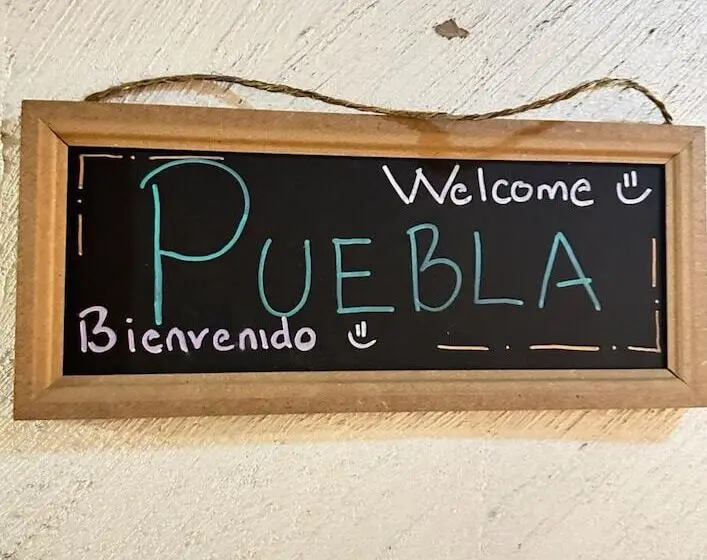 Welcome
PUEBLA
Bienvenido